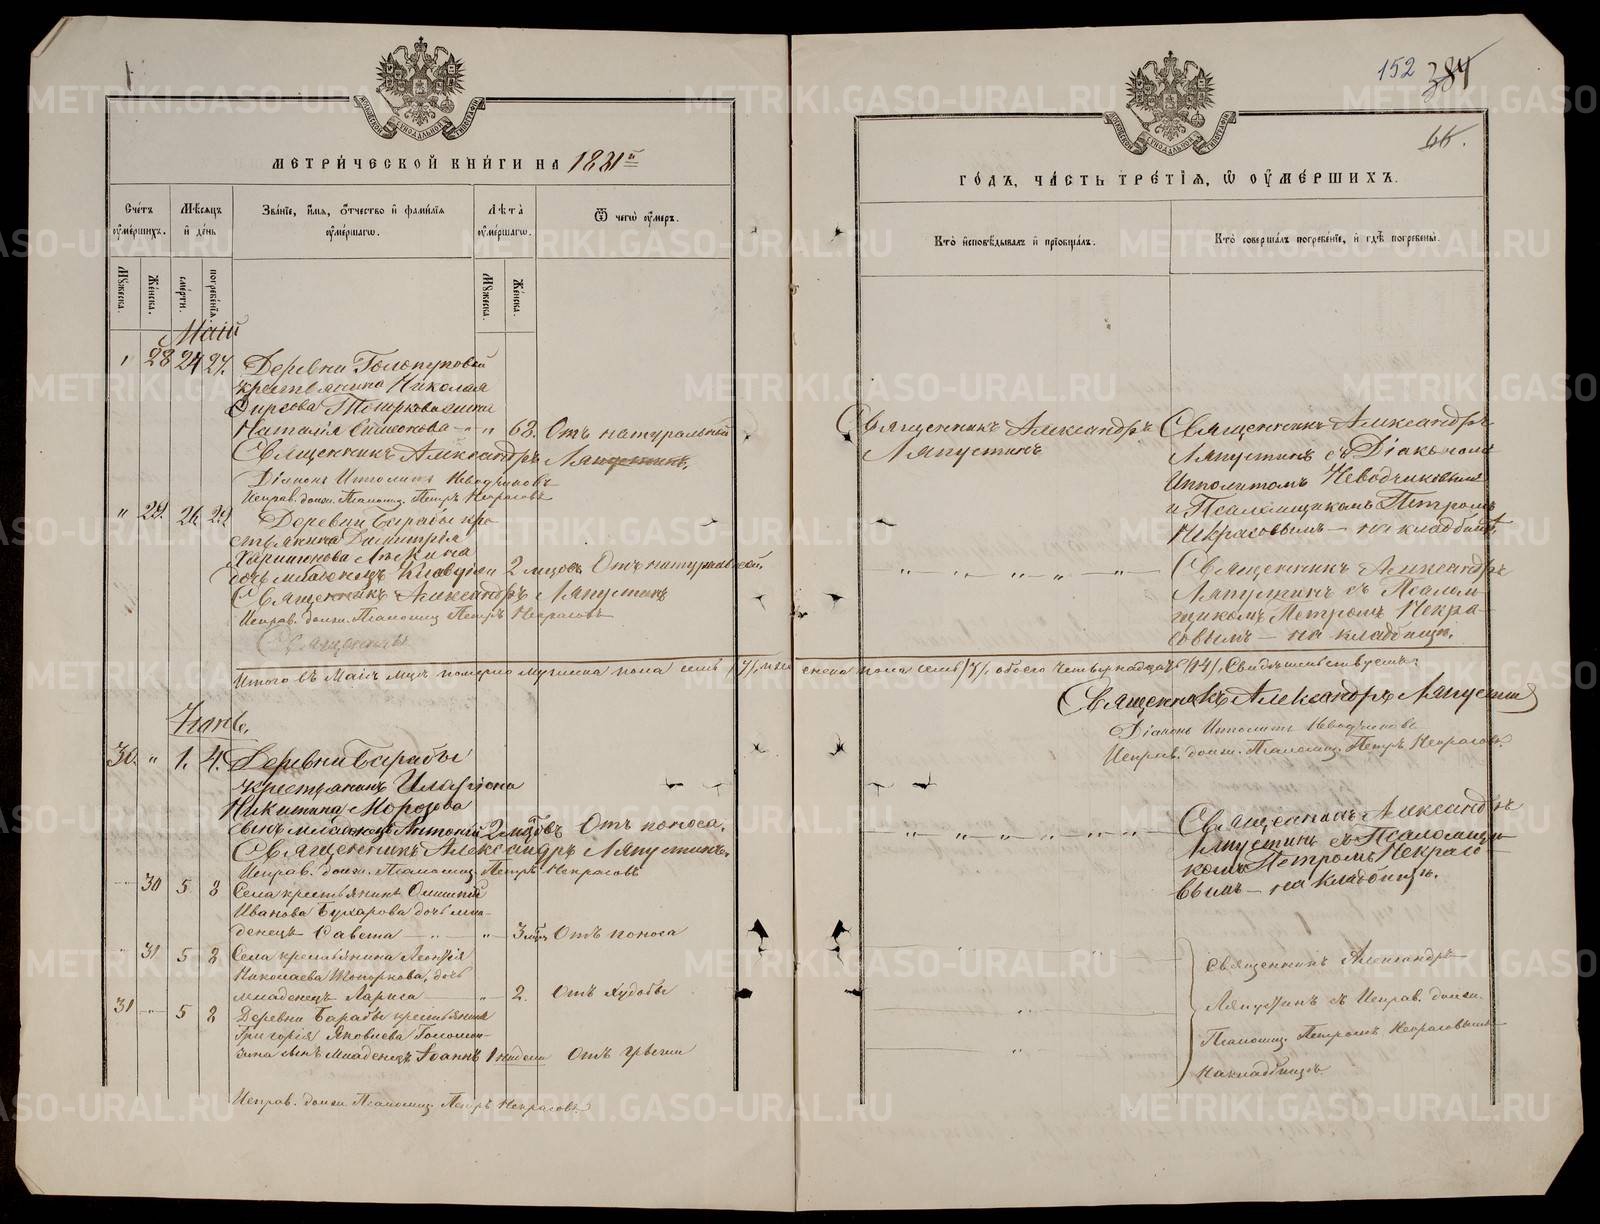 152 384
66.
МЕТРИЧЕСКОЙ КНИГИ НА 1881й
Счетъ оумершихъ.
Мѣсяцъ и день
Званіе, имя, отчество и фамилія оумершагω.
Лѣта оумершагω.
Ѿ чегω оумеръ.
Мꙋжеска.
Женска.
смерти.
погребенія.
Мꙋжеска.
Женска.
Маій
" 28 24 27. Деревни
крестьянина Николая
Фирсова
Наталія " 68. Отъ натуральной
Священникъ Александръ Ляпустинъ.
Діаконъ Ипполитъ Неводчиковъ
Исправ. долж. Псаломщ. Петръ Некрасовъ
" 29. 26 29 Деревни Барабы кре-
стьянина Димитрія
Харитонова
дочь младенецъ Клавдія 2 мцовъ Отъ натуральной.
Священникъ Александръ Ляпустинъ
Исправ. долж. Псаломщ. Петръ Некрасовъ
Священникъ
Итого въ Маіѣ мцѣ померло мужеска пола семь /7/, жен
Іюнь.
30. " 1. 4. Деревни Барабы
крестьянина Иларіона
Никитина Морозова
сынъ младенецъ Антоній 2 мцовъ Отъ поноса.
Священникъ Александръ Ляпустинъ.
Исправ. долж. Псаломщ. Петръ Некрасовъ
30 5 8 Села крестьянина
Иванова Бухарова дочь мла-
денецъ Савета " 3 мцовъ Отъ поноса
31 5 8 Села крестьянина Леонтія
Николаева Топоркова, дочь
младенецъ Лариса " 2. Отъ худобы
31 5 8 Деревни Барабы крестьянина
Григорія Яковлева
сынъ младенецъ Іоаннъ 1 недели Отъ
Исправ. долж. Псаломщ. Петръ Некрасовъ
ГОДЪ, ЧАСТЬ ТРЕТІЯ, Ѿ ОУМЕРШИХЪ.
Кто исповѣдывалъ и пріобщалъ.
Кто совершалъ погребеніе, и гдѣ погребены.
Священникъ Александръ
Ляпустинъ
Священникъ Александръ
Ляпустинъ съ Діакономъ
Ипполитомъ Неводчиковымъ
и Псаломщикомъ Петромъ
Некрасовымъ — на кладбищѣ
Священникъ Александръ
Ляпустинъ съ Псалом-
щикомъ Петромъ Некра-
совымъ — на кладбищѣ.
ска пола семь /7/, обоего четырнадцать /14/, Свидѣтельствуемъ:
Священникъ Александръ Ляпустинъ
Діаконъ Ипполитъ Неводчиковъ
Исправ. долж. Псаломщ. Петръ Некрасовъ.
Священникъ Александръ
Ляпустинъ съ Псаломщи-
комъ Петромъ Некрасо-
вымъ — на кладбищѣ.
Священникъ Александръ
Ляпустинъ съ Исправ. долж.
Псаломщ. Петромъ Некрасовымъ
на кладбищѣ
METRIKI.GASO-URAL.RU